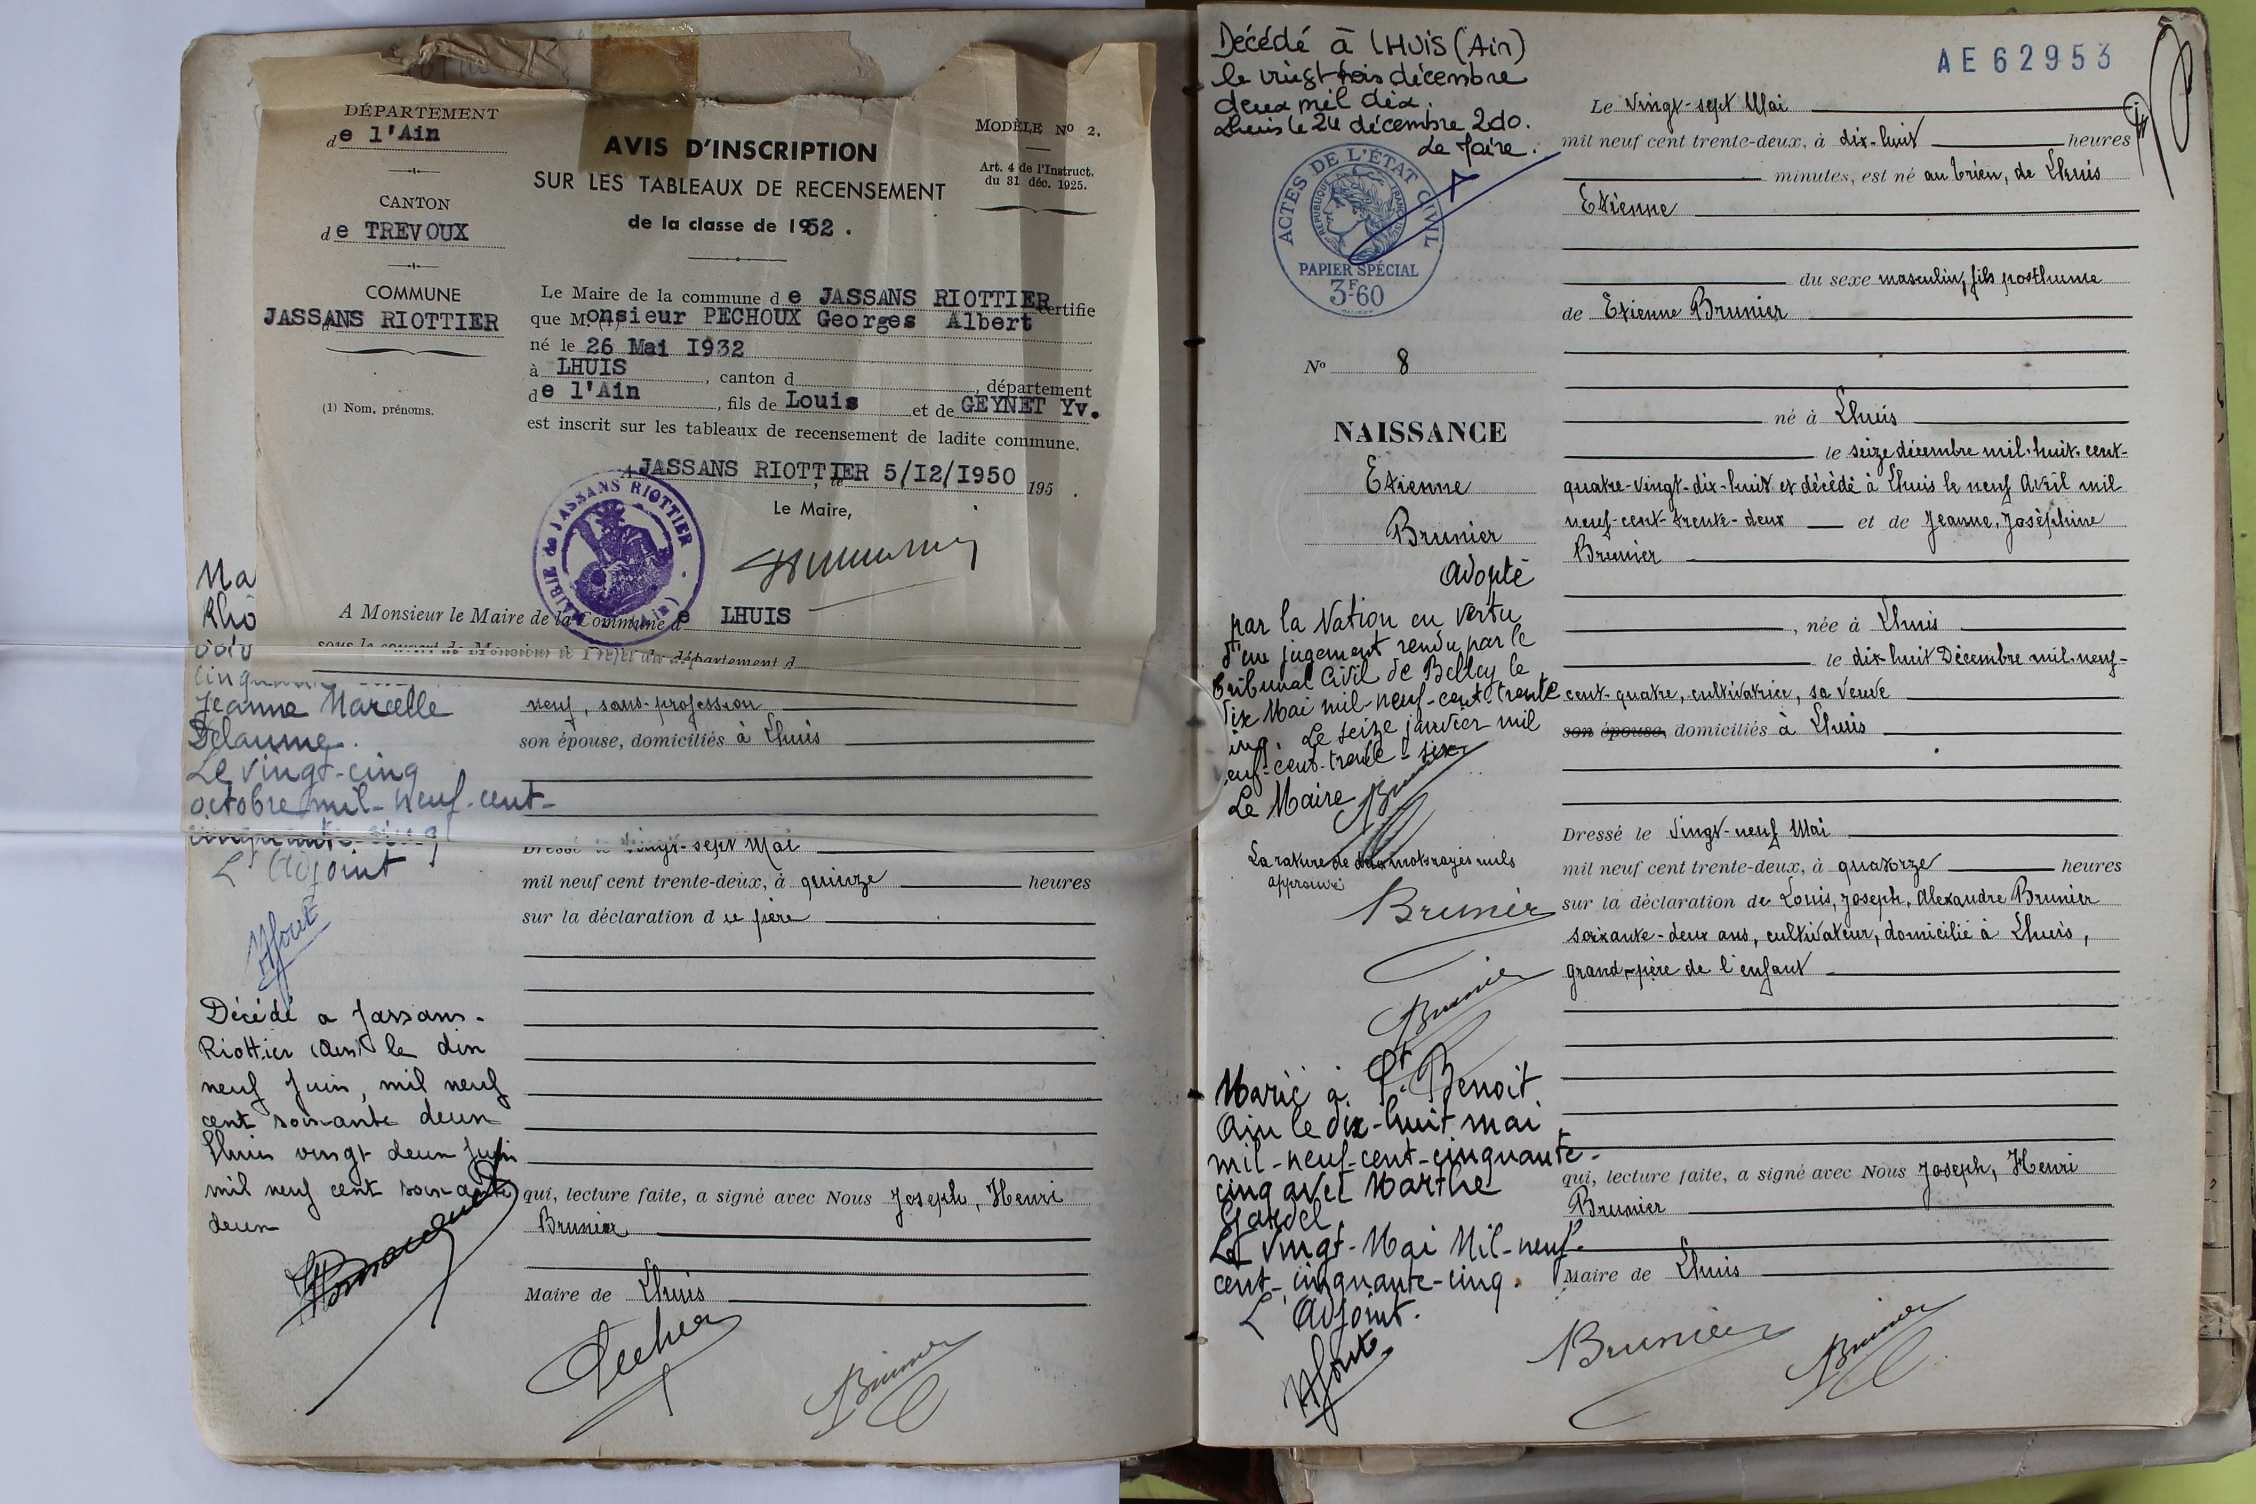 DÉPARTEMENT
de l'Ain
CANTON
de TREVOUX
COMMUNE
JASSANS RIOTTIER
(1) Nom, prénoms.
AVIS D'INSCRIPTION
SUR LES TABLEAUX DE RECENSEMENT
de la classe de 1952.
MODÈLE No 2.
Art. 4 de l'Instruct.
du 31 déc. 1925.
Le Maire de la commune de JASSANS RIOTTIER certifie
que Monsieur PECHOUX Georges Albert
né le 26 Mai 1932
à LHUIS, canton d, département
de l'Ain, fils de Louis et de GEYNET Yv.
est inscrit sur les tableaux de recensement de ladite commune.
A JASSANS RIOTTIER, le 5/12/1950 195 .
Le Maire,
MAIRIE de JASSANS RIOTTIER
(Ain)
A Monsieur le Maire de la Commune de LHUIS
sous le couvert de Monsieur le Préfet du département d
Ma
Rhô
Jeanne Marcelle
Delaume.
Le vingt-cinq
octobre mil-neuf-cent-
cinquante-cinq
L'Adjoint
Décédé a Jassans-
Riottier (Ain) le dix
neuf Juin, mil neuf
cent soixante deux
Lhuis vingt deux Juin
mil neuf cent soixante
deux
neuf, sans-profession
son épouse, domiciliés à Lhuis
Dressé le vingt-sept Mai
mil neuf cent trente-deux, à quinze heures
sur la déclaration du père
qui, lecture faite, a signé avec Nous Joseph, Henri
Brunier
Maire de Lhuis
Brunier
Décédé à LHUIS (Ain)
le vingt trois décembre
deux mil dix.
Lhuis le 24 décembre 2010.
Le Maire.
ACTES DE L'ÉTAT CIVIL
RÉPUBLIQUE FRANÇAISE
PAPIER SPÉCIAL
3F60
No 8
NAISSANCE
Etienne
Brunier
Adopté
par la Nation en vertu
d'un jugement rendu par le
Tribunal Civil de Belley le
dix Mai mil-neuf-cent-trente
cinq. Le seize janvier mil
neuf-cent-trente-six
Le Maire
Brunier
La rature de deux mots rayés nuls
approuvé
Brunier
Brunier
Marié à St. Benoit
Ain le dix-huit mai
mil-neuf-cent-cinquante-
cinq avec Marthe
Gardel
Le Vingt-Mai Mil-neuf-
cent-cinquante-cinq.
L'Adjoint.
AE62953
Le vingt-sept Mai
mil neuf cent trente-deux, à dix-huit heures
minutes, est né au Crieu, de Lhuis
Etienne
du sexe masculin, fils posthume
de Etienne Brunier
né à Lhuis
le seize décembre mil-huit-cent-
quatre-vingt-dix-huit et décédé à Lhuis le neuf Avril mil
neuf-cent-trente-deux et de Jeanne, Joséphine
Brunier
, née à Lhuis
le dix-huit Décembre mil-neuf-
cent-quatre, cultivatrice, sa veuve
son épouse, domiciliés à Lhuis
Dressé le vingt-neuf Mai
mil neuf cent trente-deux, à quatorze heures
sur la déclaration de Louis, Joseph, Alexandre Brunier
soixante-deux ans, cultivateur, domicilié à Lhuis,
grand-père de l'enfant
qui, lecture faite, a signé avec Nous Joseph, Henri
Brunier
Maire de Lhuis
Brunier
Brunier